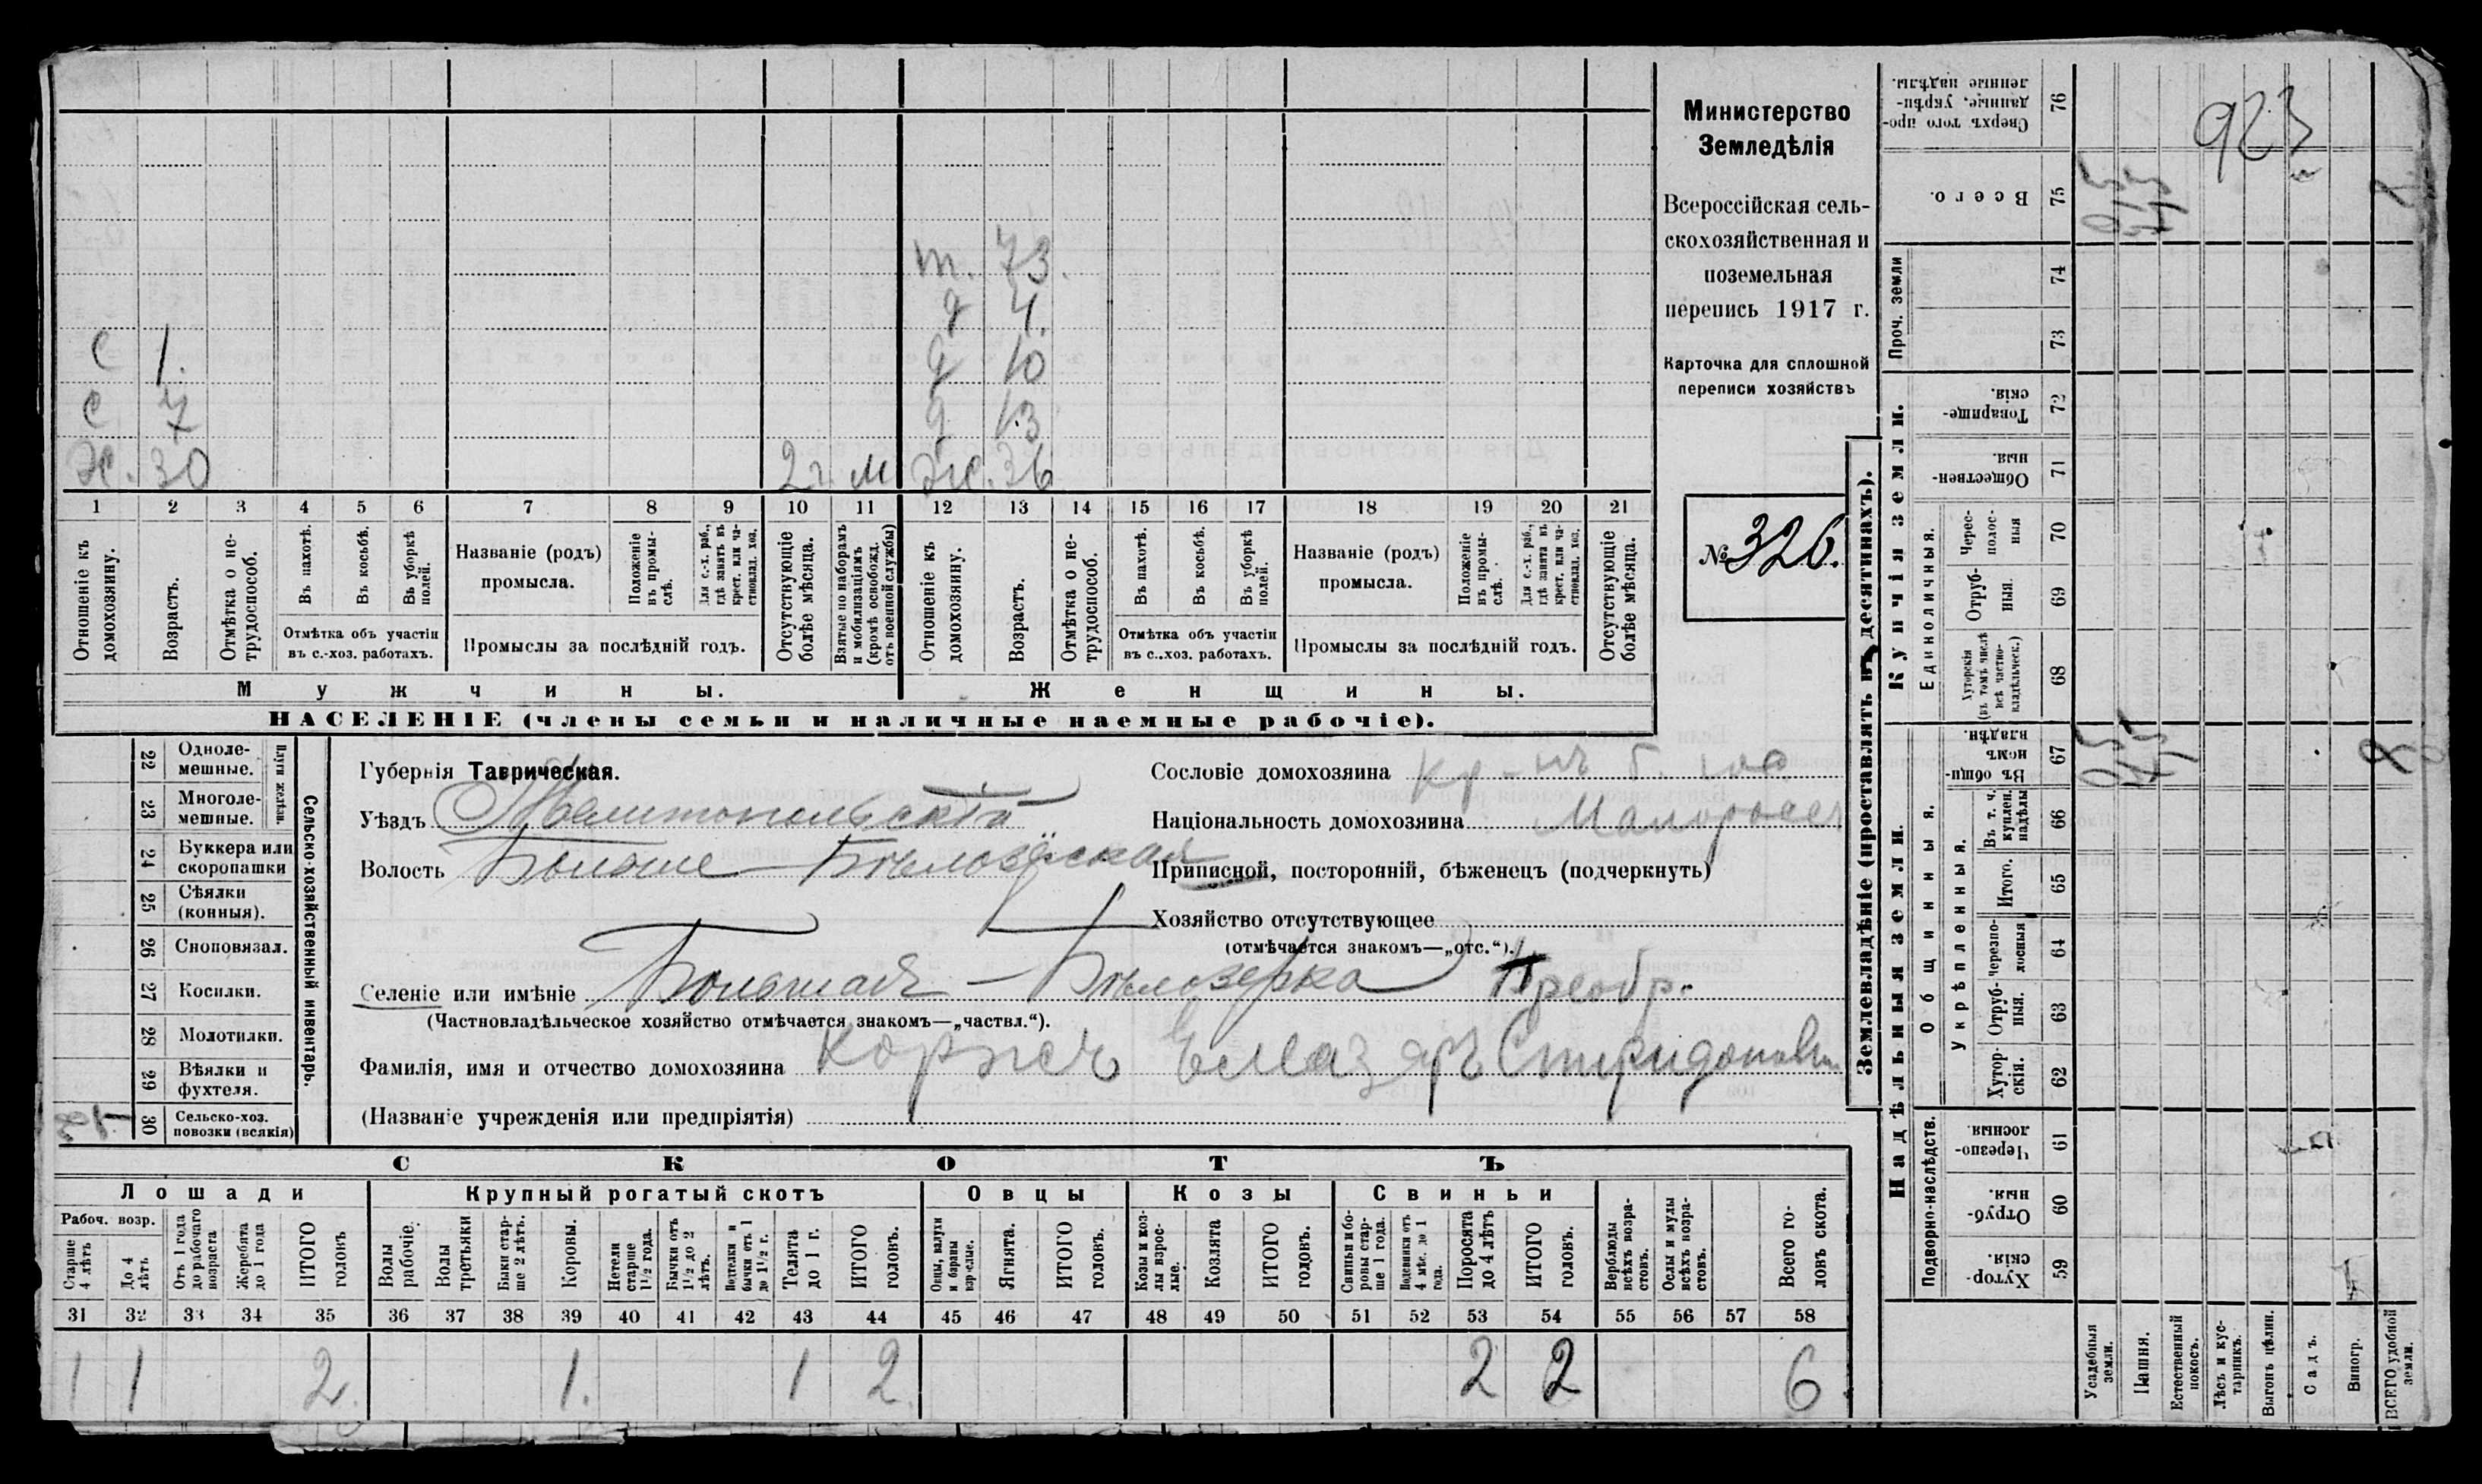 923
Министерство
Земледѣлія
Всероссійская сель-
скохозяйственная и
поземельная
перепись 1917 г.
Карточка для сплошной
переписи хозяйствъ
№ 326.
т. 73.
д 4.
с 1. д 10
с 7 д 13
Х. 30 2 г. м Ж. 36
1 2 3 4 5 6 7 8 9 10 11 12 13 14 15 16 17 18 19 20 21
Отношеніе къ домохозяину.
Возрастъ.
Отмѣтка о не-трудоспособ.
Въ пахотѣ.
Въ косьбѣ.
Въ уборкѣ полей.
Отмѣтка объ участіи
въ с.-хоз. работахъ.
Названіе (родъ)
промысла.
Положеніе въ промы-слѣ.
Для с.-х. раб., гдѣ занятъ въ крест. или ча-стновлад. хоз.
Промыслы за послѣдній годъ.
Отсутствующіе болѣе мѣсяца.
Взятые по наборамъ и мобилизаціямъ (кромѣ освобожд. отъ военной службы)
Отношеніе къ домохозяину.
Возрастъ.
Отмѣтка о не-трудоспособ.
Въ пахотѣ.
Въ косьбѣ.
Въ уборкѣ полей.
Отмѣтка объ участіи
въ с.-хоз. работахъ.
Названіе (родъ)
промысла.
Положеніе въ промы-слѣ.
Для с.-х. раб., гдѣ занята въ крест. или ча-стновлад. хоз.
Промыслы за послѣдній годъ.
Отсутствующіе болѣе мѣсяца.
Мужчины. Женщины.
НАСЕЛЕНІЕ (члены семьи и наличные наемные рабочіе).
22 Одноле-мешные.
23 Многоле-мешные.
Плуги желѣзн.
24 Буккера или скоропашки
25 Сѣялки (конныя).
26 Сноповязал.
27 Косилки.
28 Молотилки.
29 Вѣялки и фухтеля.
30 Сельско-хоз. повозки (всякія)
Сельско-хозяйственный инвентарь.
Губернія Таврическая.
Уѣздъ Мелитопольскій
Волость Больше-Бѣлозёрская
Сословіе домохозяина кр-нъ б.
Національность домохозяина Малороссъ
Приписной, посторонній, бѣженецъ (подчеркнуть)
Хозяйство отсутствующее
(отмѣчается знакомъ—„отс.“).
Селеніе или имѣніе Большая-Бѣлозерка Преобр.
(Частновладѣльческое хозяйство отмѣчается знакомъ—„частвл.“).
Фамилія, имя и отчество домохозяина Корпечъ Елеазаръ Спиридоновъ
(Названіе учрежденія или предпріятія)
СКОТЪ
Лошади Крупный рогатый скотъ Овцы Козы Свиньи
Рабоч. возр.
Старше 4 лѣтъ
До 4 лѣтъ
Отъ 1 года до рабочаго возраста
Жеребята до 1 года
ИТОГО головъ
Волы рабочіе.
Волы третьяки
Быки стар-ше 2 лѣтъ.
Коровы.
Нетели старше 1½ года.
Бычки отъ 1½ до 2 лѣтъ.
Подтелки и бычки отъ 1 до 1½ г.
Телята до 1 г.
ИТОГО головъ.
Овцы, валухи и бараны взрослые.
Ягнята.
ИТОГО головъ.
Козы и коз-лы взрос-лые.
Козлята
ИТОГО головъ.
Свиньи и бо-ровы стар-ше 1 года.
Подсвинки отъ 4 мѣс. до 1 года.
Поросята до 4 лѣтъ
ИТОГО головъ.
Верблюды всѣхъ возра-стовъ.
Ослы и мулы всѣхъ возра-стовъ.
Всего го-ловъ скота.
31 32 33 34 35 36 37 38 39 40 41 42 43 44 45 46 47 48 49 50 51 52 53 54 55 56 57 58
1 1 2. 1. 1 2 2 2 6
Землевладѣніе (проставлять въ десятинахъ).
Купчія земли.
Надѣльныя земли.
Сверхъ того про-данные, укрѣп-ленные надѣлы. 76
Всего. 75
Проч. земли 74 73
Товарище-скія 72
Обществен-ныя. 71
Единоличныя.
Черес-полос-ныя 70
Отруб-ныя. 69
Хуторскія (въ томъ числѣ всѣ частно-владѣльческ.) 68
Общинныя.
Въ общи-номъ владѣн. 67
Укрѣпленныя.
Въ т. ч. куплен. надѣлы 66
Итого. 65
Черезпо-лосныя 64
Отруб-ныя. 63
Хутор-скія. 62
Подворно-наслѣдств.
Черезпо-лосныя. 61
Отруб-ныя. 60
Хутор-скія 59
Усадебныя земли.
Пашня.
Естественный покосъ.
Лѣсъ и кус-тарникъ.
Выгонъ цѣлин.
Садъ.
Виногр.
ВСЕГО удобной земли.